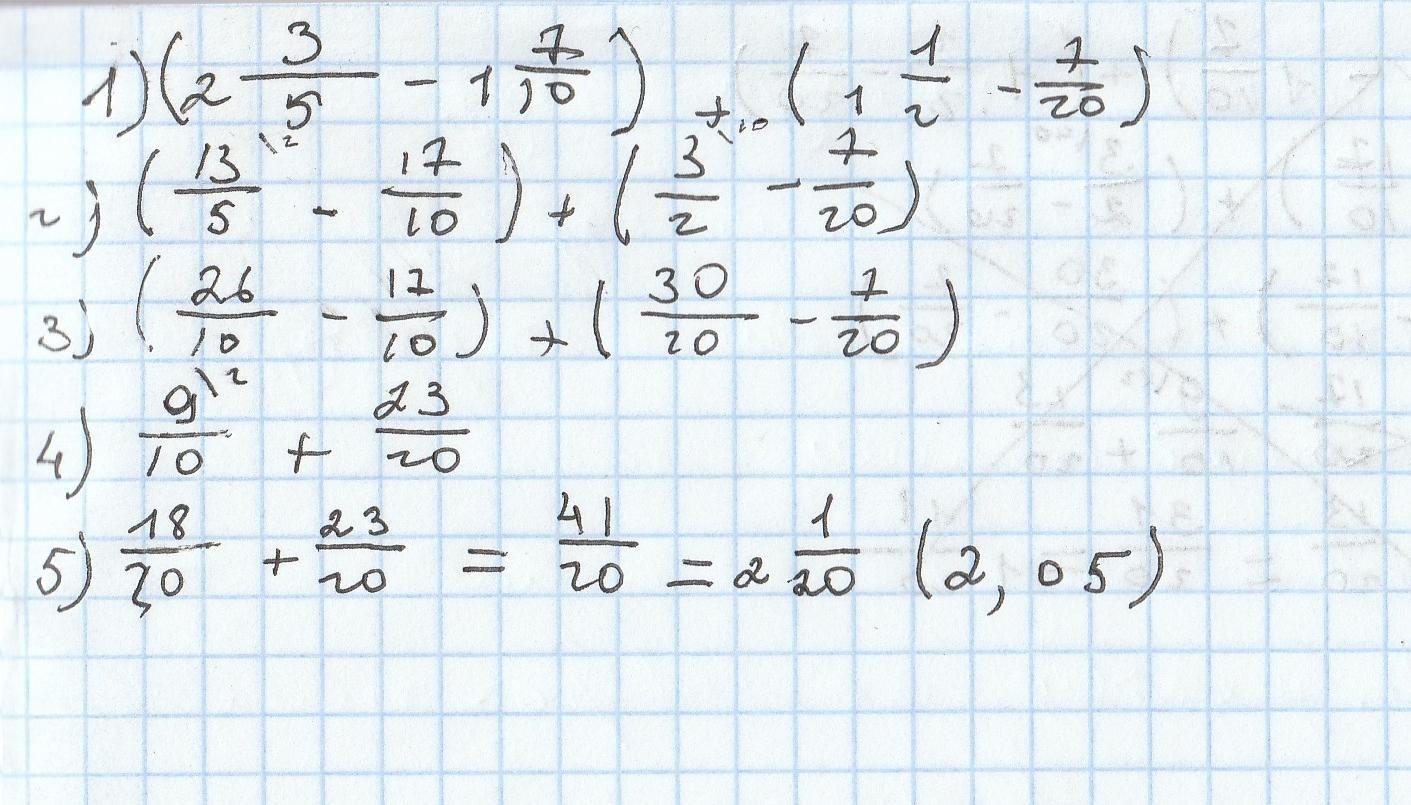 1) (2 3/5 - 1 7/10) + (1 1/2 - 7/20)
2) (13/5 \2 - 17/10) + (3/2 \10 - 7/20)
3) (26/10 - 17/10) + (30/20 - 7/20)
4) 9/10 \2 + 23/20
5) 18/20 + 23/20 = 41/20 = 2 1/20 (2,05)